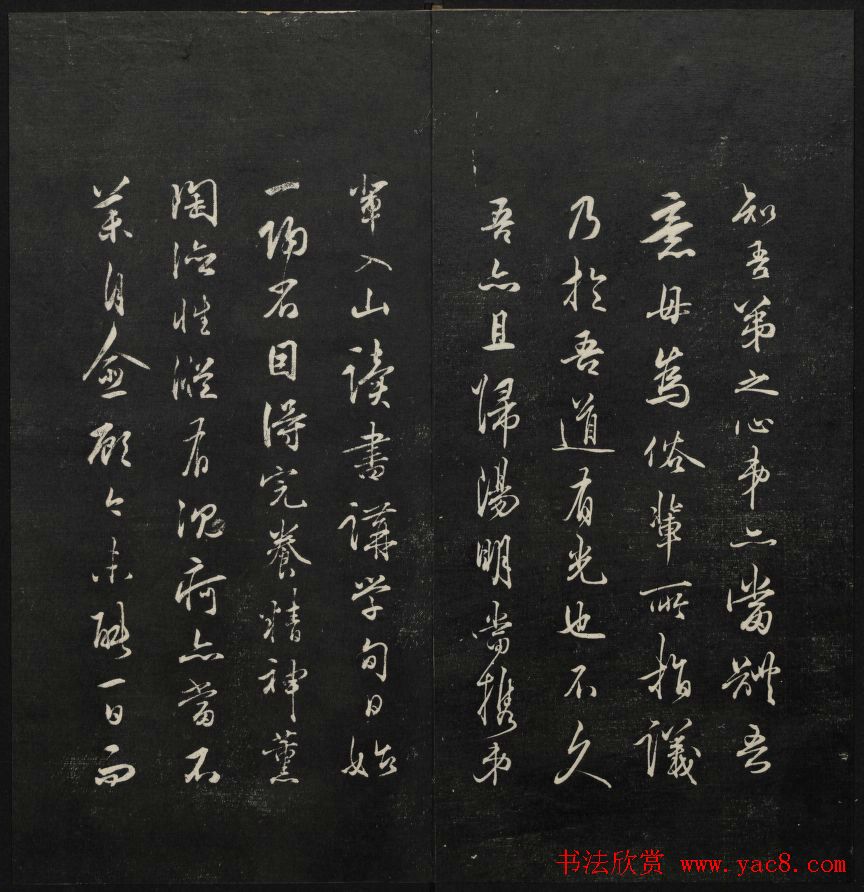 知吾弟之心弟亦當體吾
意毋為俗輩所指議
乃於吾道有光也不久
吾亦且歸陽明當携弟
輩入山讀書講學旬日始
一歸省因得完養精神薰
陶德性縱有沉痾亦當不
藥自愈顧今未能一日而
书法欣赏 www.yac8.com